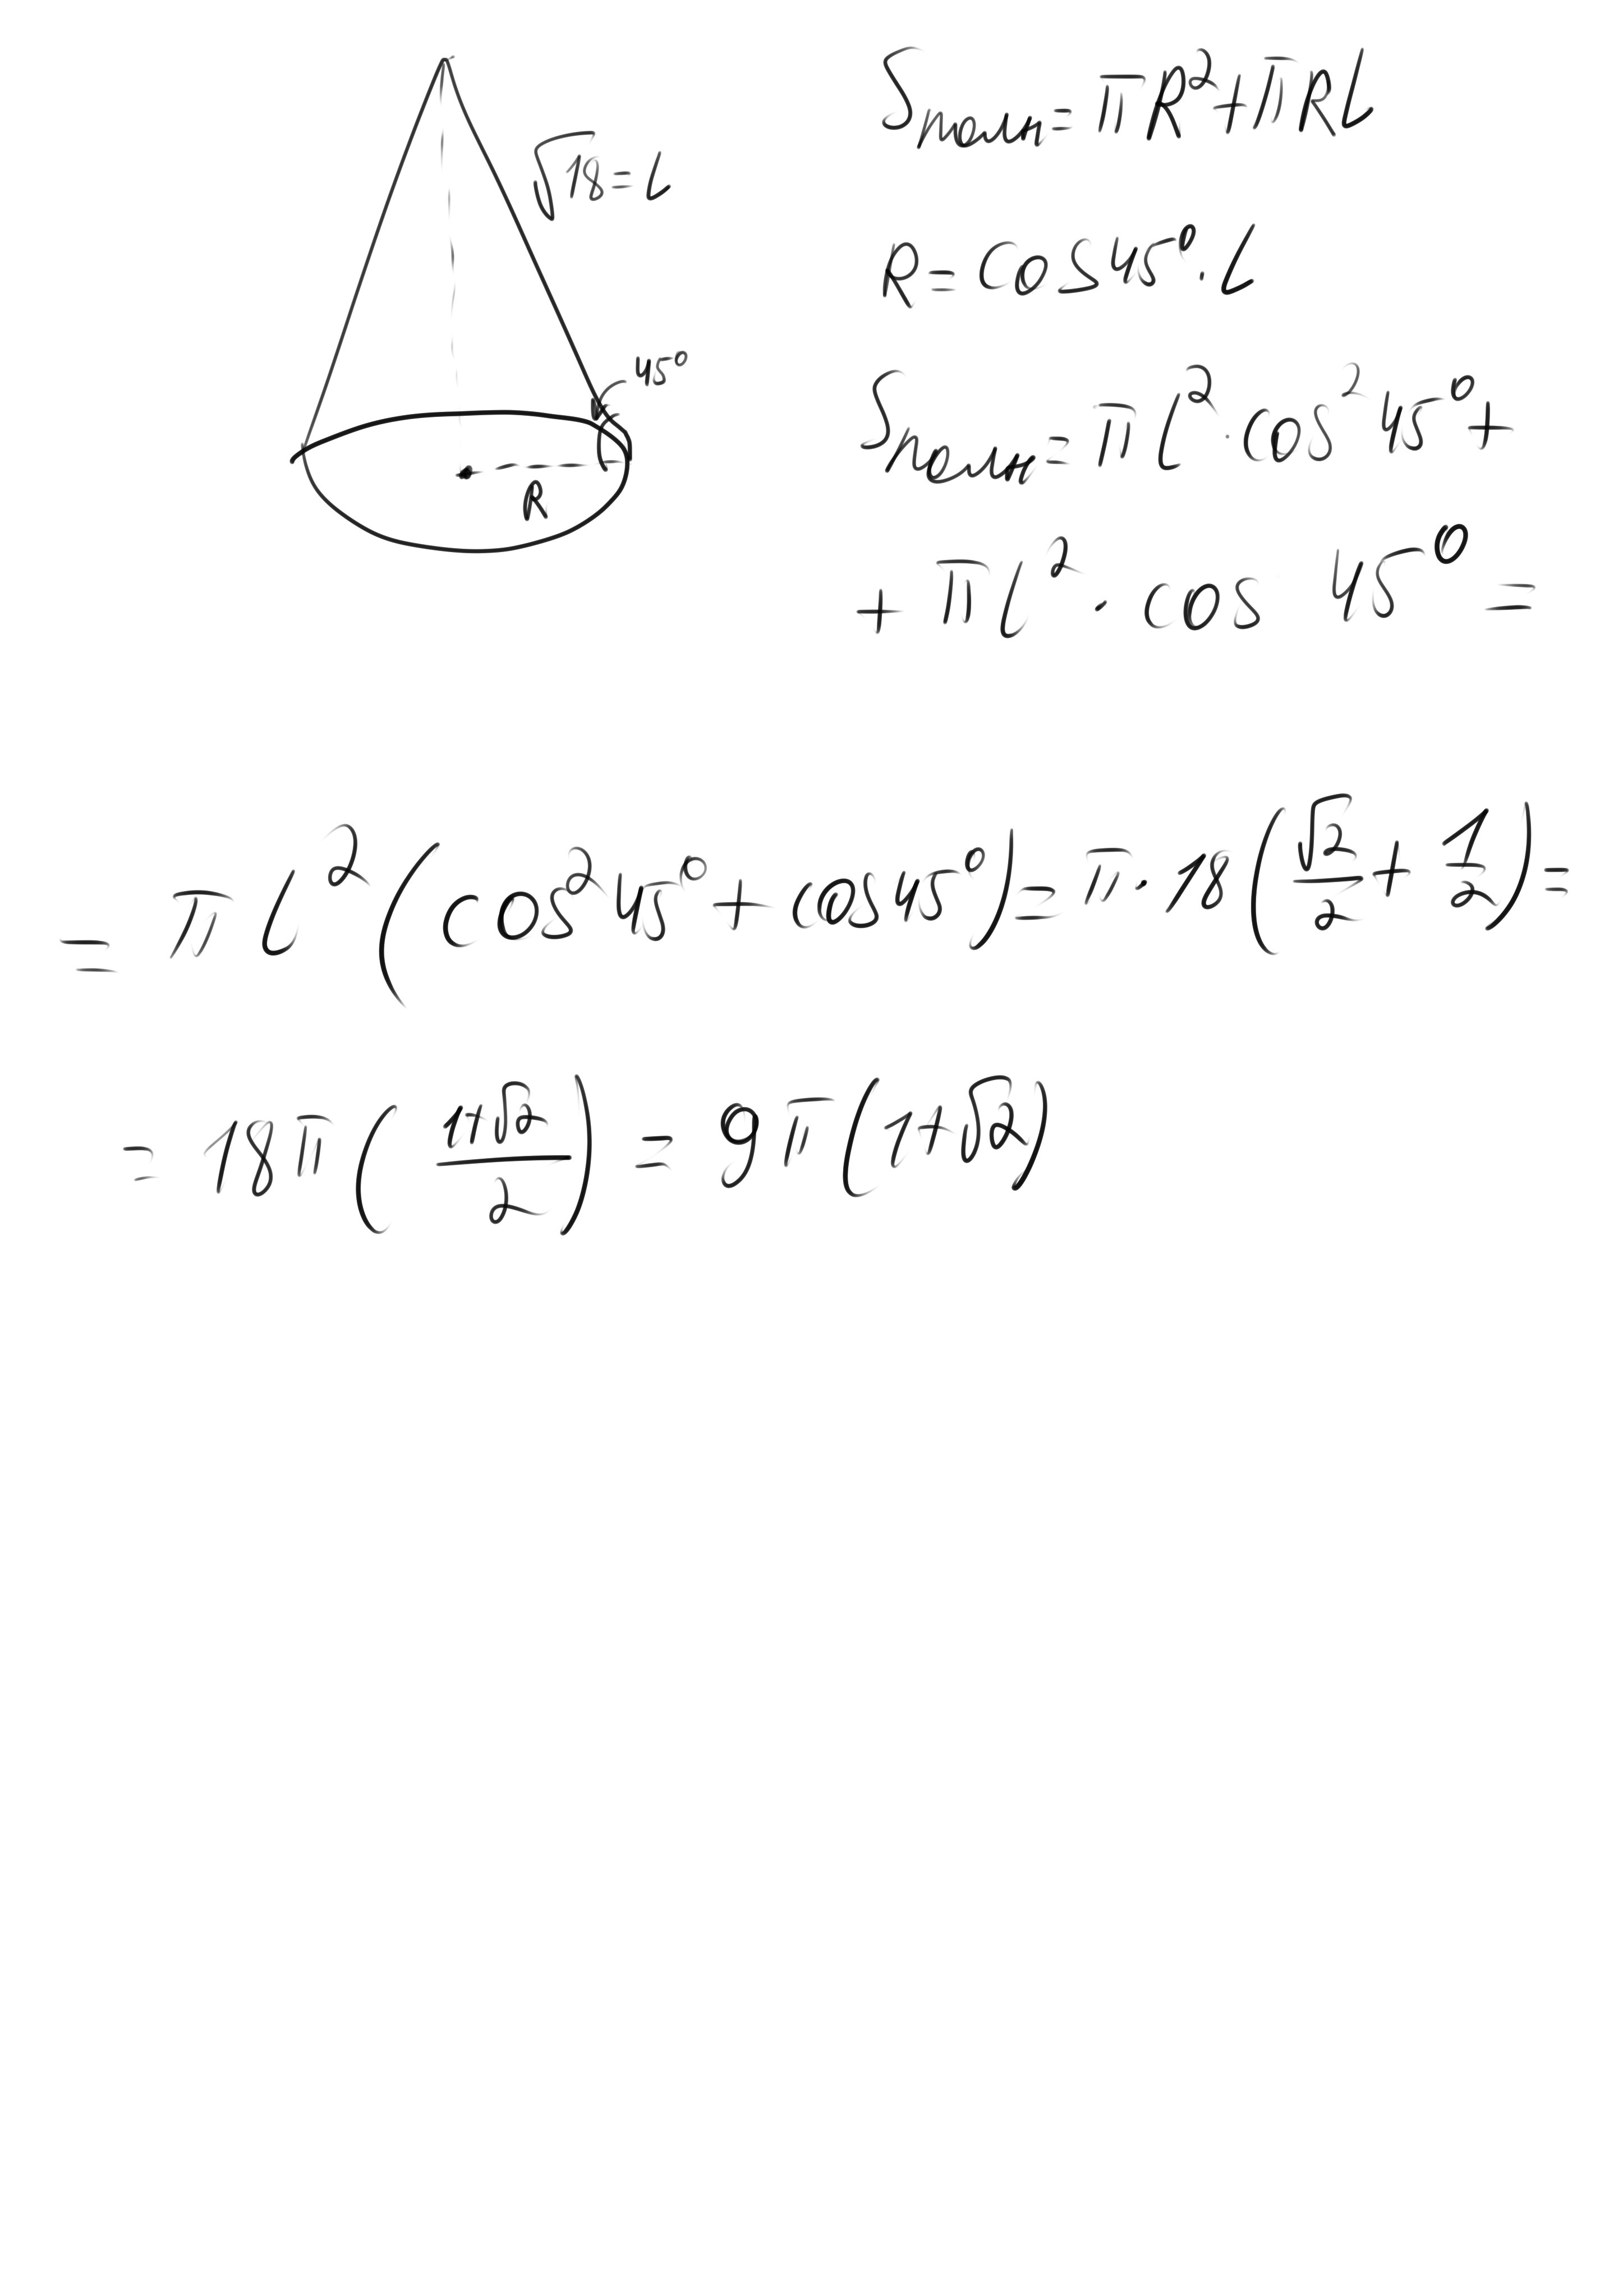 √18 = L
45°
R
Sполн = πR² + πRL
R = cos45° · L
Sполн = πL² · cos²45° +
+ πL² · cos 45° =
= πL² (cos²45° + cos45°) = π · 18 (√2/2 + 1/2) =
= 18π ( (1+√2)/2 ) = 9π (1+√2)